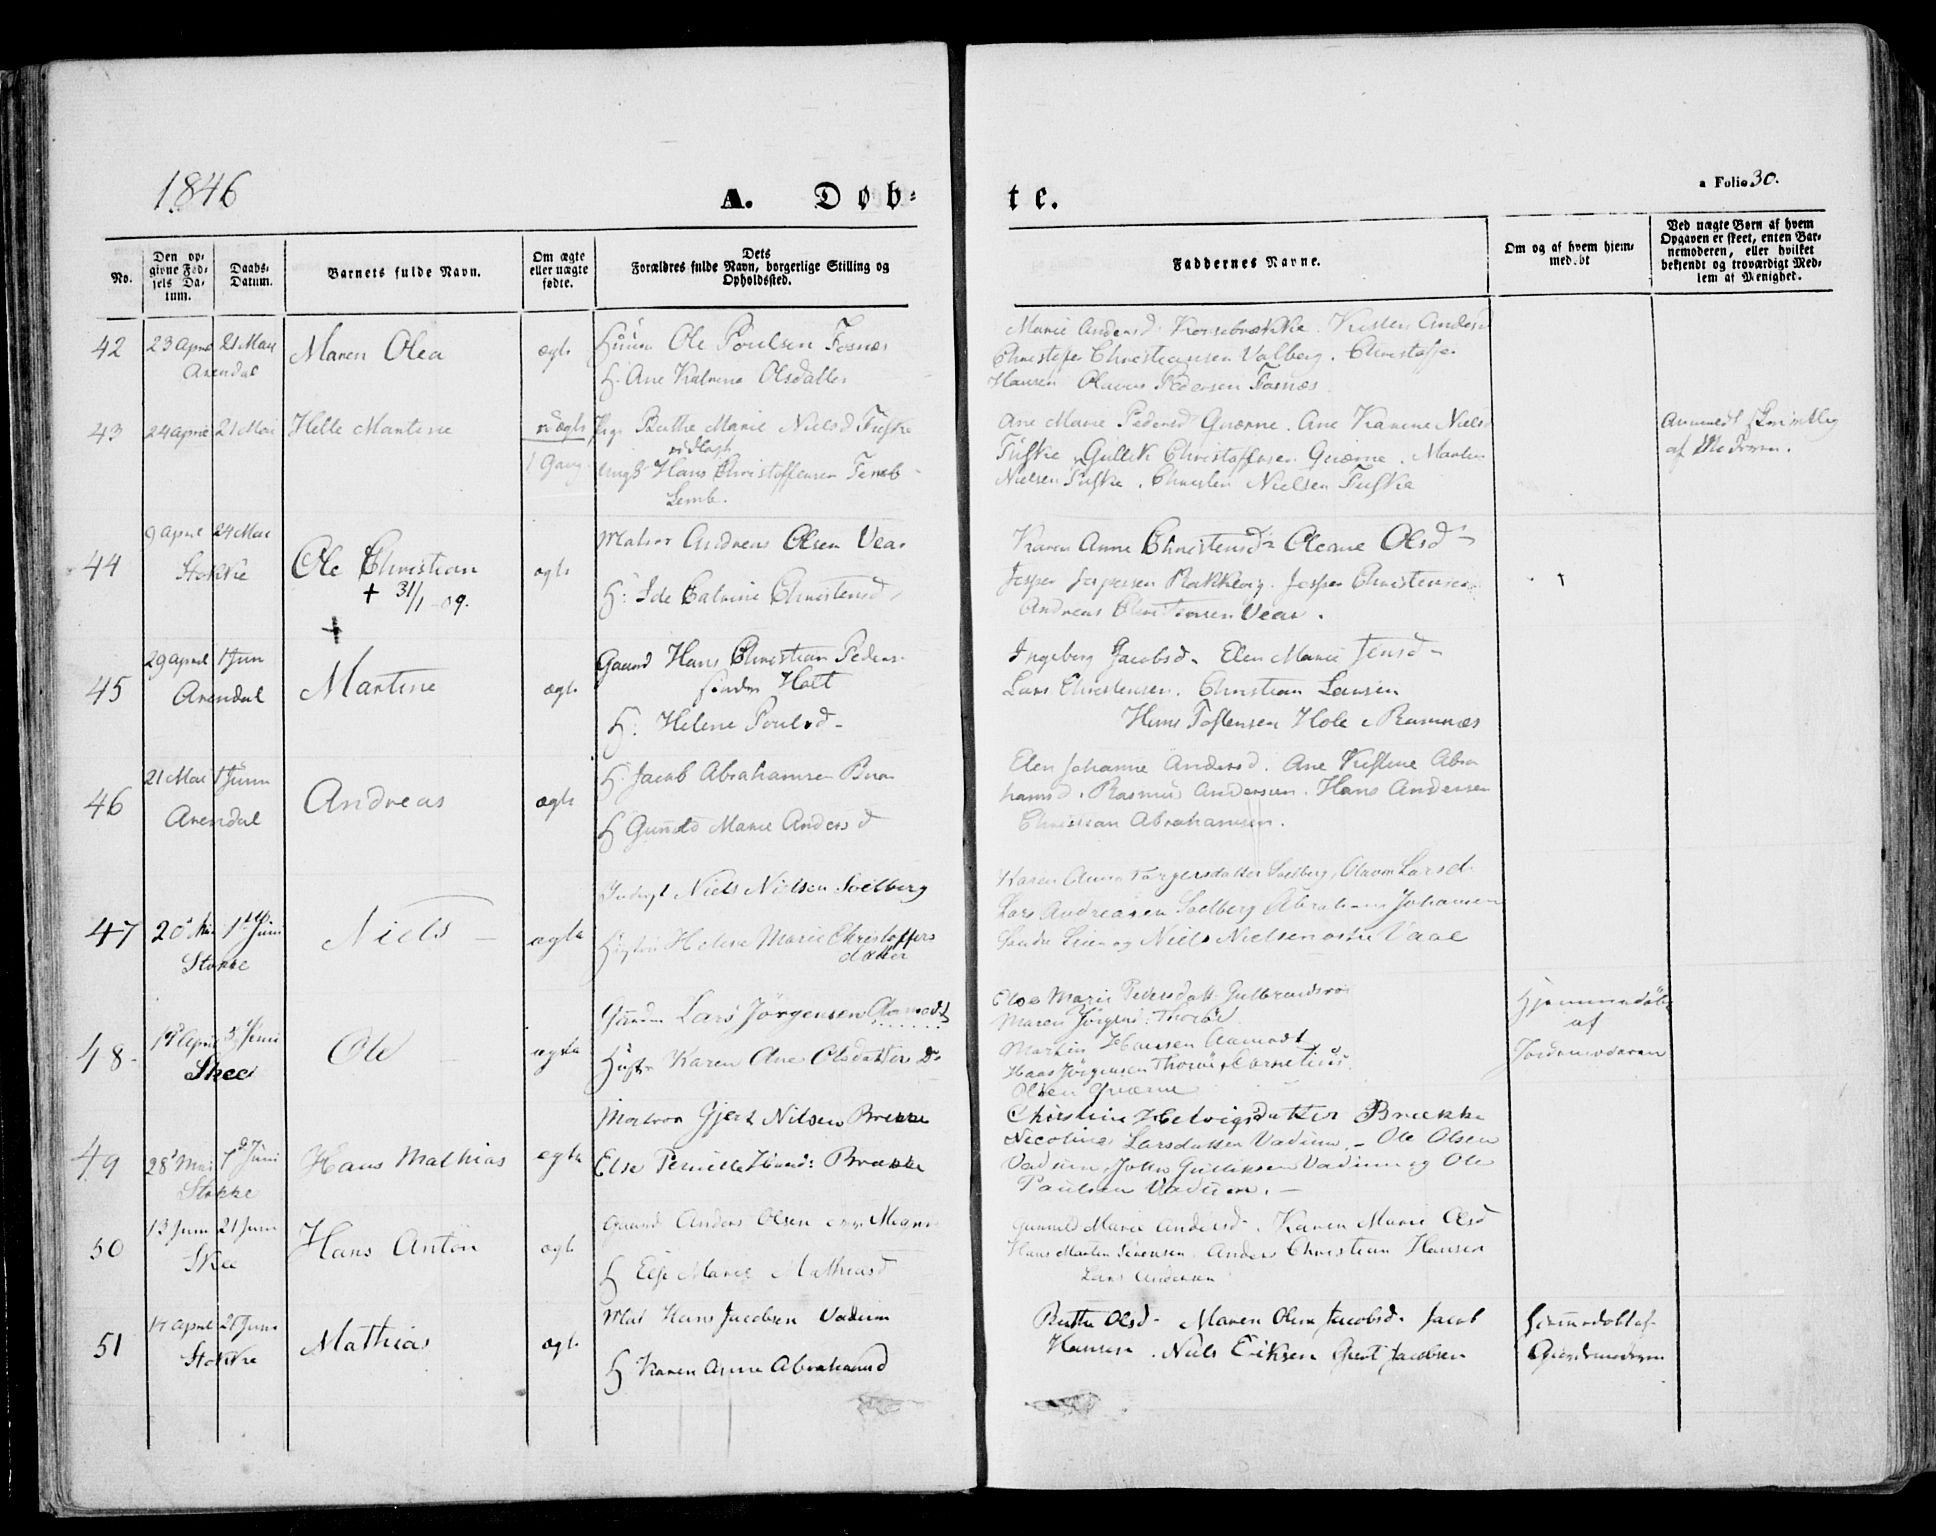 1846
A. Døb-
te.
a Folio 30.
No.
Den op-
givne Fød-
sels Da-
tum.
Daabs-
Datum.
Barnets fulde Navn.
Om ægte
eller uægte
fødte.
Dets
Forældres fulde Navn, borgerlige Stilling og
Opholdssted.
Faddernes Navne.
Om og af hvem hjem-
med.bt
Ved uægte Børn af hvem
Opgaven er skeet, enten Bar-
nemoderen, eller hvilket
bekjendt og troværdigt Med-
lem af Menighed.
42
23 April 21 Mai
Arendal
Maren Olea
ægte
Ole Poulsen Fosnæs
H. Ane Katrine Olsdatter
Marie Andersd. Korsebrække. Kristen Anders
Christoffer Christiansen Valberg. Christoffer
Hansen Olaves Pedersen Fosnæs
43
24 April 21 Mai
Helle Martine
uægte
1 Gang
Pige Berthe Marie Nielsd Fuske
udlagt
Ungk Hans Christoffersen
Lemb.
Ane Marie Pedersd Qværne. Ane Karine Niels
Fuske Gullik Christoffersen Qværne. Marten
Nielsen Fuske. Christen Nielsen Fuske
Anmeldt Skriftlig
af Moderen.
44
9 April 24 Mai
Stokke
Ole Christian
+ 31/1-09.
ægte
Matros Andreas Olsen Vear
H: Ide Catrine Christensd
Karen Anne Christensd Oleane Olsd
Jesper Jespersen Rakkevig. Jesper Christensen
Andreas Christensen Vear.
+
45
29 April 1 Jun
Arendal
Martine
ægte
Gaard Hans Christian Peders-
søndre Holt
H: Helene Poulsd
Ingeborg Jacobsd. Elen Marie Jensd
Lars Christensen. Christian Larsen
Hans Toftensen Hole i Ramnæs
46
21 Mai 1 Juni
Arendal
Andreas
ægte
H. Jacob Abrahamsen
H Gunild Marie Andersd
Elen Johanne Andersd. Ane Kistine Abra
hamsd. Rasmus Andersen. Hans Andersen
Christian Abrahamsen.
47
20 Mai 1ste Juni
Stokke
Niels
ægte
Inderst Niels Nielsen Soelberg
Hustru Helene Marie Christoffers
datter
Karen Anne Torgersdatter Soelberg, Larsd.
Lars Andreasen Soelberg Abraham Johansen
Søndre og Niels Nielsen østre Vaae
48
19 April Juni
Skee
Ole
ægte
Gaardm Lars Jørgensen Aamodt
Hustru Karen Ane Olsdatter Do
Else Marie Pedersdatt Gulbrandsrød
Maren Jørgens: Thorød
Martin Hansen Aamodt
Hans Jørgensen Thorød, Cornelius
Olsen Qværne
Hjemmedøbt
af
Jordemoderen
49
28 Mai 7d Juni
Stokke
Hans Mathias
ægte
Matros Gjert Nilsen Brekke
Else Pernille Hansd: Brække
Christine Helvigsdatter Brække
Nicoline Larsdatter Vadum, - Ole Olsen
Vadum, John Gulliksen Vadum og Ole
Paulsen Vadum. -
50
13 Juni 21 Juni
Skee
Hans Anton
ægte
Gaard Anders Olsen
H Else Marie Mathiasd
Gunnild Marie Andersd. Karen Marie Olsd
Hans Martin Sørensen. Anders Christian Hansen
Lars Andersen
51
17 April 21 Juni
Stokke
Mathias
ægte
Mat Hans Jacobsen Vadum
H Karen Anne Abrahamsd
Berthe Olsd. Maren Oline Jacobsd. Jacob
Hansen. Niels Eriksen Gjert Jacobsen
Hjemmedøbt af
Gjordemoderen